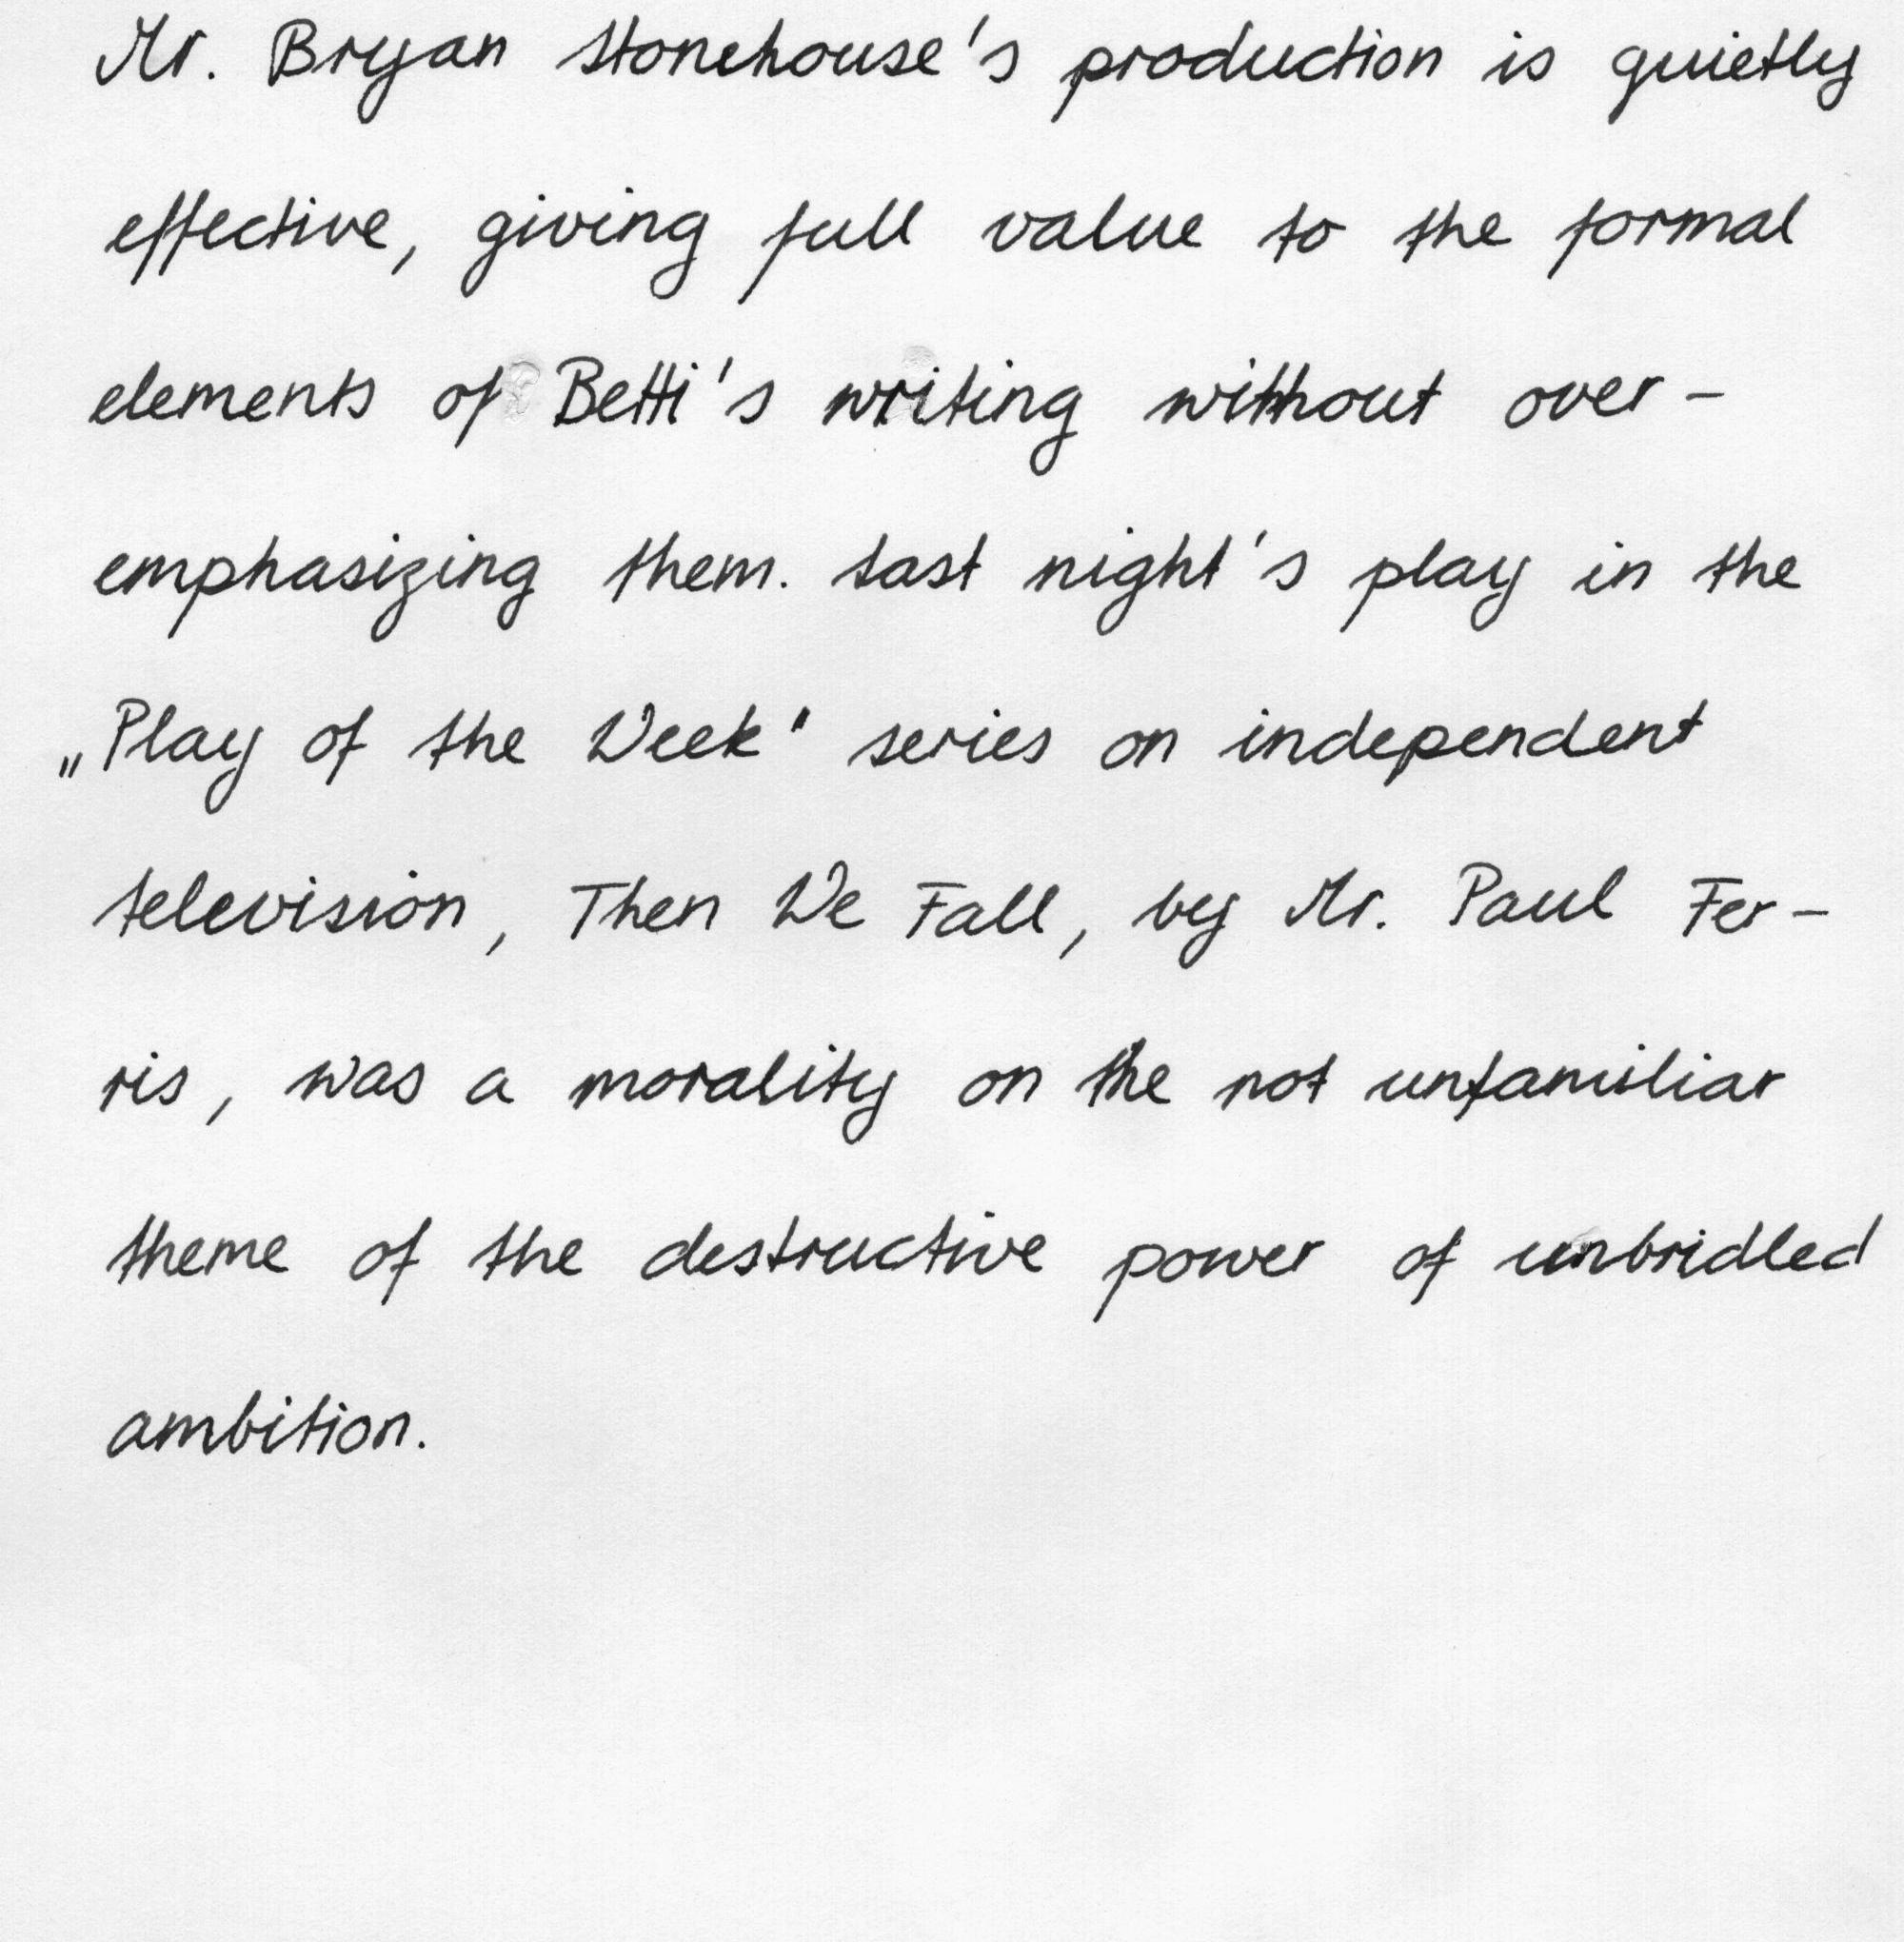 Mr. Bryan Stonehouse's production is quietly
effective, giving full value to the formal
elements of Betti's writing without over-
emphasizing them. Last night's play in the
„Play of the Week" series on independent
television, Then We Fall, by Mr. Paul Fer-
ris, was a morality on the not unfamiliar
theme of the destructive power of unbridled
ambition.